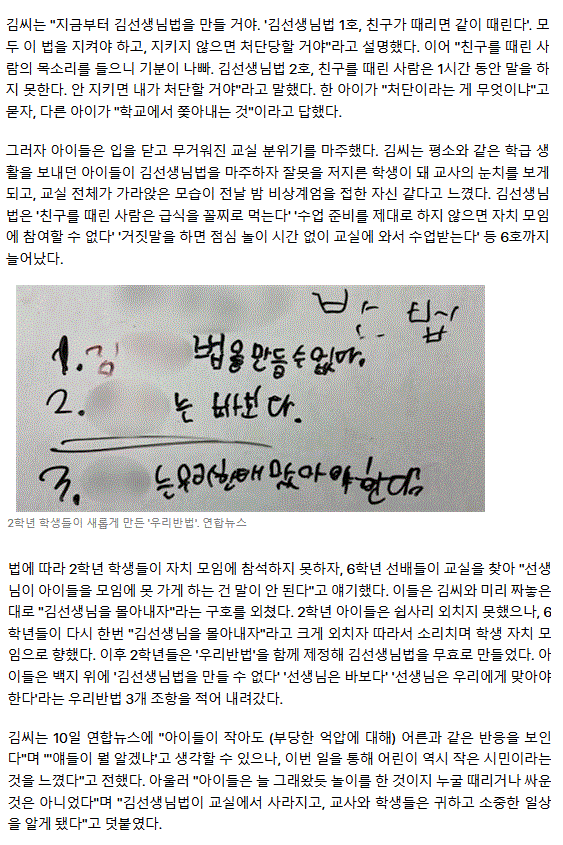 김씨는 "지금부터 김선생님법을 만들 거야. '김선생님법 1호, 친구가 때리면 같이 때린다'. 모
두 이 법을 지켜야 하고, 지키지 않으면 처단당할 거야"라고 설명했다. 이어 "친구를 때린 사
람의 목소리를 들으니 기분이 나빠. 김선생님법 2호, 친구를 때린 사람은 1시간 동안 말을 하
지 못한다. 안 지키면 내가 처단할 거야"라고 말했다. 한 아이가 "처단이라는 게 무엇이냐"고
묻자, 다른 아이가 "학교에서 쫓아내는 것"이라고 답했다.
그러자 아이들은 입을 닫고 무거워진 교실 분위기를 마주했다. 김씨는 평소와 같은 학급 생
활을 보내던 아이들이 김선생님법을 마주하자 잘못을 저지른 학생이 돼 교사의 눈치를 보게
되고, 교실 전체가 가라앉은 모습이 전날 밤 비상계엄을 접한 자신 같다고 느꼈다. 김선생님
법은 '친구를 때린 사람은 급식을 꼴찌로 먹는다' '수업 준비를 제대로 하지 않으면 자치 모임
에 참여할 수 없다' '거짓말을 하면 점심 놀이 시간 없이 교실에 와서 수업받는다' 등 6호까지
늘어났다.
1. 김 법을 만들 수 없다.
2. 는 바보다.
3. 는 우리한테 맞아야 한다
2학년 학생들이 새롭게 만든 '우리반법'. 연합뉴스
법에 따라 2학년 학생들이 자치 모임에 참석하지 못하자, 6학년 선배들이 교실을 찾아 "선생
님이 아이들을 모임에 못 가게 하는 건 말이 안 된다"고 얘기했다. 이들은 김씨와 미리 짜놓은
대로 "김선생님을 몰아내자"라는 구호를 외쳤다. 2학년 아이들은 쉽사리 외치지 못했으나, 6
학년들이 다시 한번 "김선생님을 몰아내자"라고 크게 외치자 따라서 소리치며 학생 자치 모
임으로 향했다. 이후 2학년들은 '우리반법'을 함께 제정해 김선생님법을 무효로 만들었다. 아
이들은 백지 위에 '김선생님법을 만들 수 없다' '선생님은 바보다' '선생님은 우리에게 맞아야
한다'라는 우리반법 3개 조항을 적어 내려갔다.
김씨는 10일 연합뉴스에 "아이들이 작아도 (부당한 억압에 대해) 어른과 같은 반응을 보인
다"며 "'얘들이 뭘 알겠냐'고 생각할 수 있으나, 이번 일을 통해 어린이 역시 작은 시민이라는
것을 느꼈다"고 전했다. 아울러 "아이들은 늘 그래왔듯 놀이를 한 것이지 누굴 때리거나 싸운
것은 아니었다"며 "김선생님법이 교실에서 사라지고, 교사와 학생들은 귀하고 소중한 일상
을 알게 됐다"고 덧붙였다.